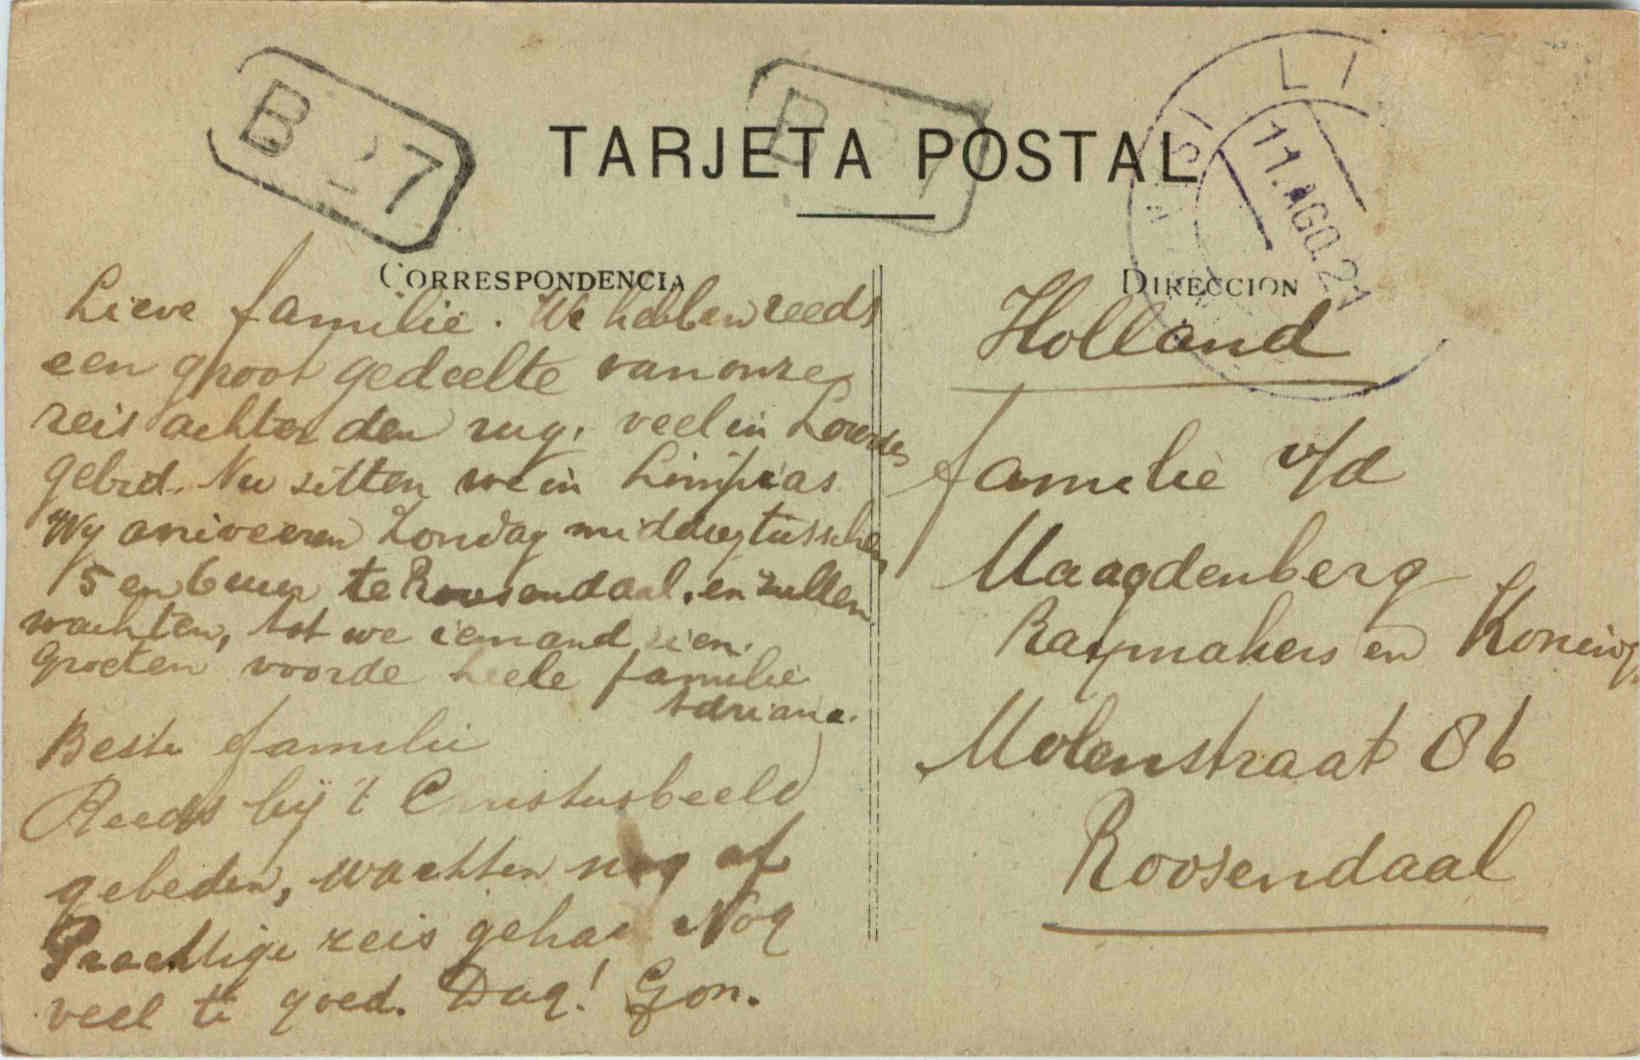 B 27
B 7
TARJETA POSTAL
LI
11.AGO.21
CORRESPONDENCIA
Lieve familie. We hebben reeds
een groot gedeelte van onze
reis achter den rug. veel in Lourdes
gebid. Nu zitten we in Limpias
Wy ariveeren Zondag middag tusschen
5 en 6 uur te Roosendaal. en zullen
wachten, tot we iemand zien.
Groeten voor de heele familie
Adriana.
Beste familie
Reeds bij 't Christusbeeld
gebeden, wachten nog af
Prachtige reis gehad Nog
veel te goed. Dag! Gon.
DIRECCION
Holland
familie v/d
Maagdenberg
Raymakers en Konings
Molenstraat 86
Roosendaal